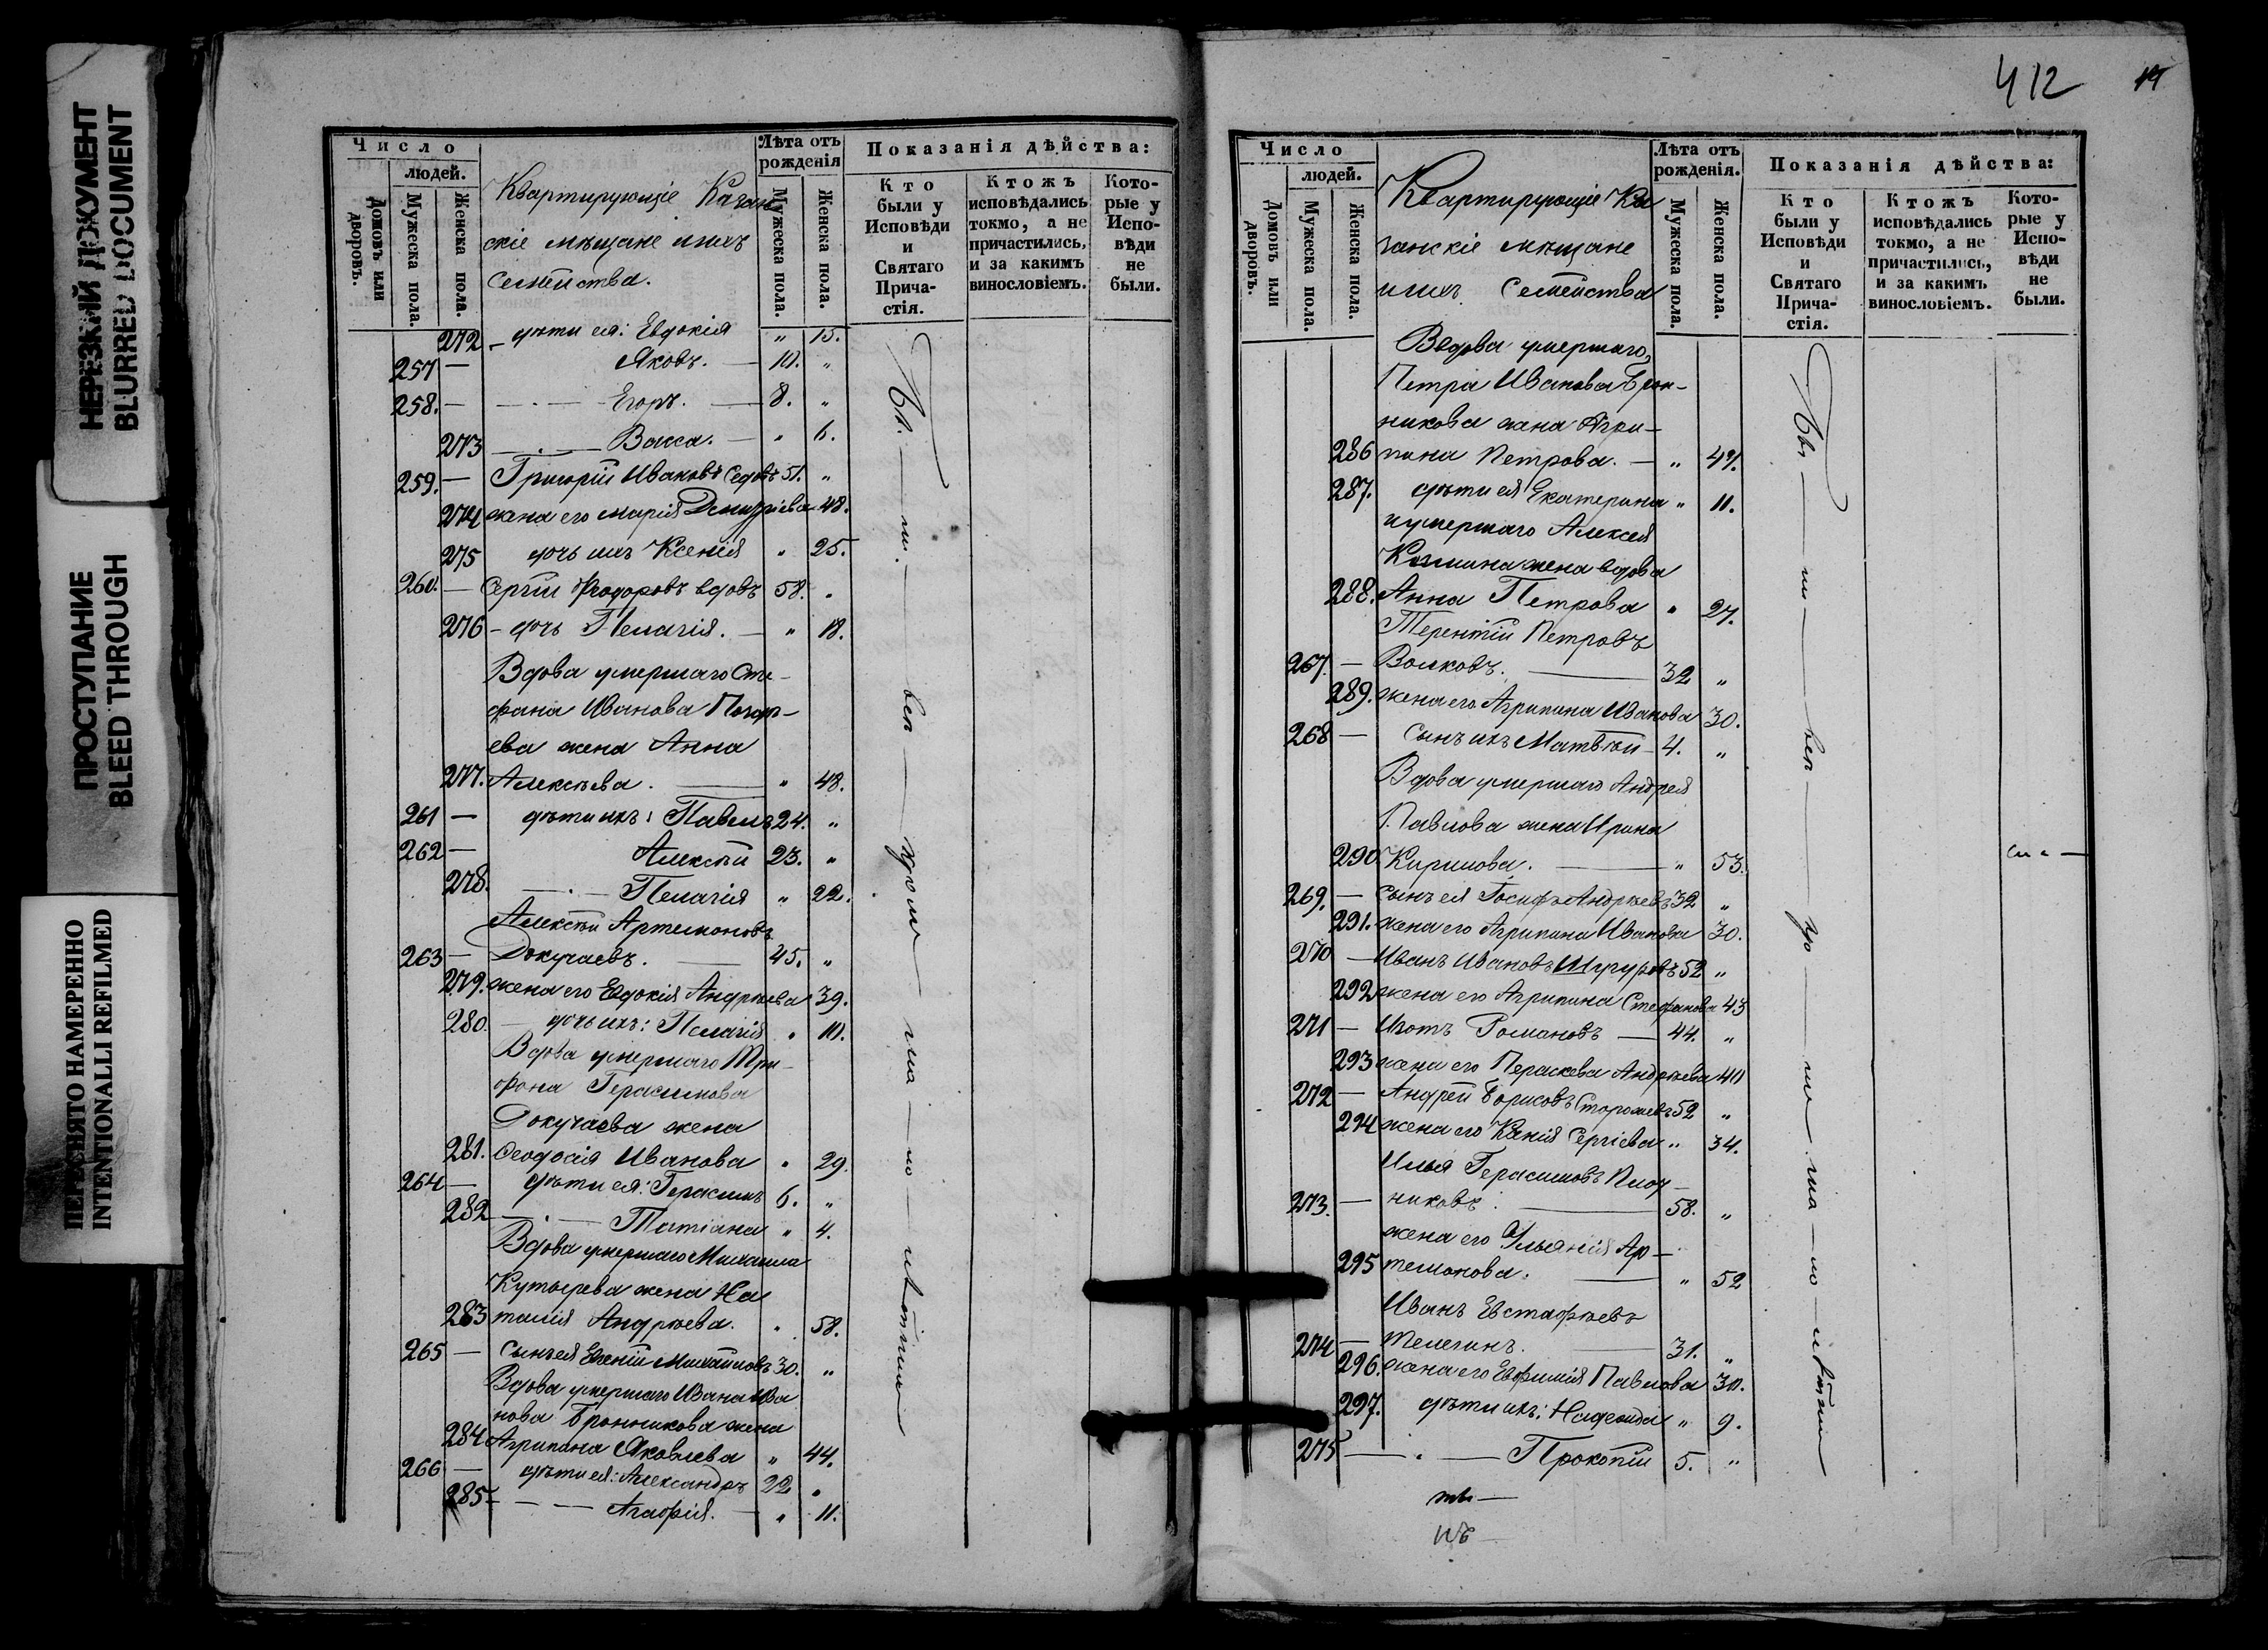 НЕРЕЗКИЙ ДОКУМЕНТ
BLURRED DOCUMENT
ПРОСТУПАНИЕ
BLEED THROUGH
ПЕРЕСНЯТО НАМЕРЕННО
INTENTIONALLI REFILMED
Число
людей.
Домовъ или дворовъ.
Мужеска пола.
Женска пола.
Квартирующіе Казан
скіе мѣщане и ихъ
Семейства.
Лѣта отъ рожденія
Мужеска пола.
Женска пола.
Показанія дѣйства:
Кто были у Исповѣди и Святаго Прича-стія.
Ктожъ исповѣдались токмо, а не причастились, и за какимъ винословіемъ.
Кото-рые у Испо-вѣди не были.
272 — дѣти ея: Евдокія " 15.
257 — Яковъ. — 10. "
258. — — Егоръ. — 8. "
273 — Васса. — " 6.
259. — Григорій Ивановъ Седовъ 51. "
274 жена его Марія Димитріева 48.
275 дочь ихъ Ксенія " 25.
260. — Сергій Ѳеодоровъ вдовъ 58. "
276 — дочь Пелагія. — " 18.
Вдова умершаго Сте-
фана Иванова
ева жена Анна
277. Алексѣева. — " 48.
261 — дѣти ихъ: Павелъ 24. "
262 — Алексѣй 23. "
278. — Пелагія " 22.
Алексѣй Артемоновъ
263 — Докучаевъ. — 45. "
279. жена его Евдокія Андреева 39.
280. — дочь ихъ: Пелагія " 10.
Вдова умершаго Три-
фона Герасимова
Докучаева жена
281. Ѳеодосія Иванова " 29.
264 — дѣти ея: Герасимъ 6. "
282 — Татіана " 4.
Вдова умершаго Михаила
Кутырева жена На
283 талія Андреева. " 58.
265 — Сынъ ея Евгеній Михайловъ 30. "
Вдова умершаго Ивана Ива
нова Бронникова жена
284 Агрипина Яковлева " 44.
266 — дѣти ея: Александръ 22 "
285 — — Агафія. — " 11.
412
Число
людей.
Домовъ или дворовъ.
Мужеска пола.
Женска пола.
Квартирующіе Ка
занскіе мѣщане
и ихъ Семейства
Лѣта отъ рожденія.
Мужеска пола.
Женска пола.
Показанія дѣйства:
Кто были у Исповѣди и Святаго Прича-стія.
Ктожъ исповѣдались токмо, а не причастились, и за какимъ винословіемъ.
Кото-рые у Испо-вѣди не были.
Вдова умершаго
Петра Иванова Брон-
никова жена Агри-
286 пина Петрова. — " 47.
287. дѣти ея Екатерина " 11.
умершаго Алексея
жена вдова
288. Анна Петрова " 27.
Терентій Петровъ
267. — Волковъ. — 32 "
289. жена его Агрипина Иванова 30.
268 — Сынъ ихъ Матвѣй — 4. "
Вдова умершаго Андрея
Павлова жена Ирина
290. Кирилова. — " 53.
269. — Сынъ ея Іосифъ Андреевъ 32 "
291. жена его Агрипина Иванова 30.
270 — Иванъ Ивановъ 52 "
292 жена его Агрипина Стефанова 43
271 — Изотъ Романовъ — 44. "
293 жена его Параскева Андреева 40
272 — Андрей Борисовъ Сторожевъ 52 "
294 жена его Ксенія Сергіева " 34.
Илья Герасимовъ Плот-
273. — никовъ. — 58. "
жена его Ульянія Ар-
295 темонова. — " 52
Иванъ Евстафьевъ
274 — Телегинъ. — 31. "
296. жена его Евфимія Павлова 30.
297. дѣти ихъ: Надежда " 9.
275 — — Прокопій 5. "